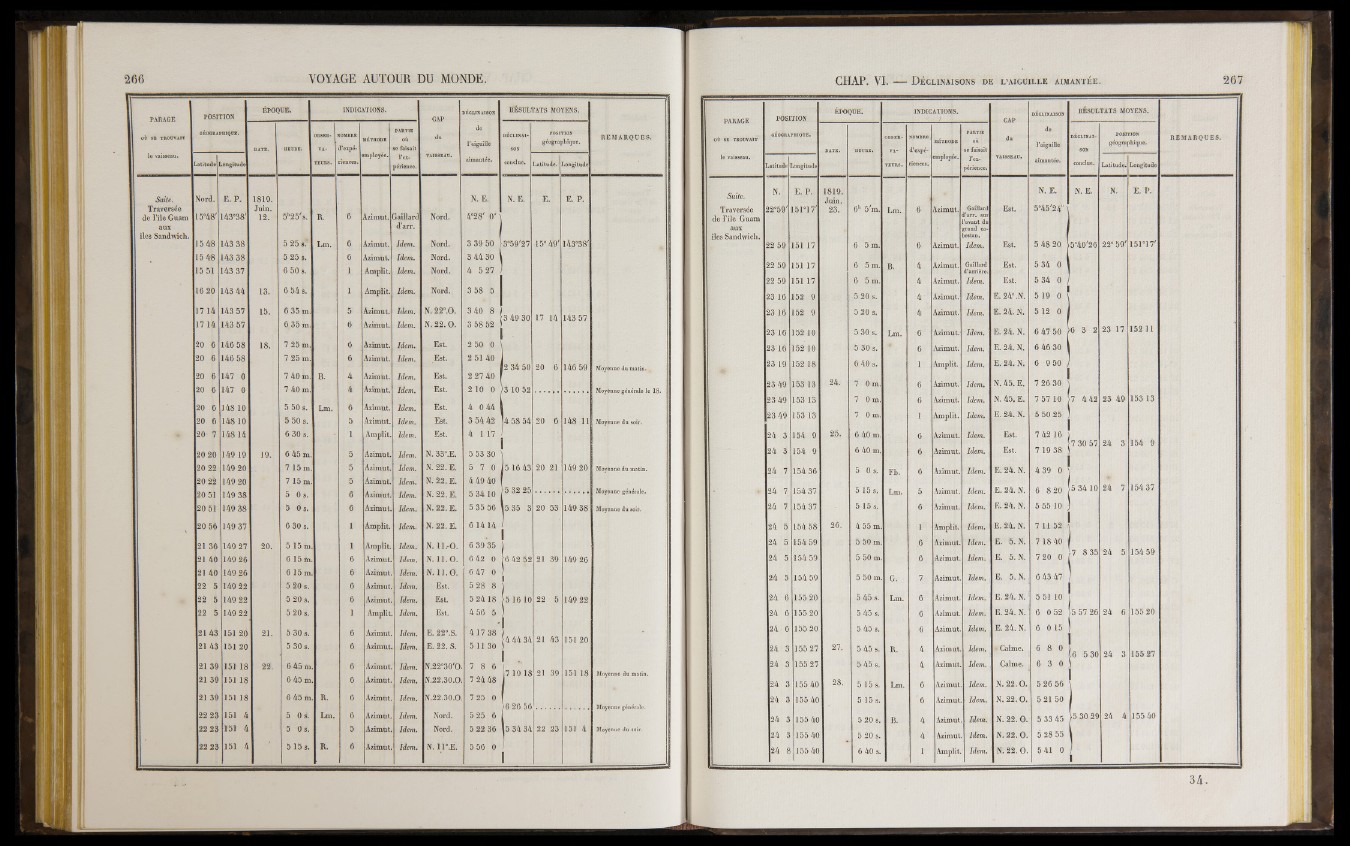 266 VOYAGE AUTOUR DU MONDE.
PARAGE OÙ SE TROUVAIT le vaisseau.
POSITION GÉOGRAPHIQUE. Latitude Longitude
ÉPOQUE. DATE. HEURE.
INDICATIONS. OBSERVATEURS. NOMBRE d'expériences. MÉTHODE employée. PARTIE où se faisait l'expérience.
CAP du VAISSEAU.
DÉCLINAISON de l'aiguille aimantée.
RÉSULTATS MOYENS. DÉCLINAISON conclue. POSITION géographique. Latitude. Longitude
REMARQUES.
Suite. Nord. E. P. 1819. N. E. N. E. E. E. P.
Traversée de l'île Guam aux îles Sandwich.
15°48' 143°38' Juin. 12. 5h25's. R. 6 Azimut. Gaillard d'arr. Nord. 4°28' 0"
15 48 143 38 5 25 s. Lm. 6 Azimut. Idem. Nord. 3 39 50 3°59'27 15° 49' 143°38'
15 48 143 38 5 25 s. 6 Azimut. Idem. Nord. 3 44 30
15 51 143 37 6 50 s. 1 Amplit. Idem. Nord. 4 5 27
16 20 143 44 13. 6 54 s. 1 Amplit. Idem. Nord. 3 58 5
17 14 143 57 15. 6 35 m. 5 Azimut. Idem. N. 22°.O. 3 40 8 3 49 30 17 14 143 57
17 14 143 57 6 35 m. 6 Azimut. Idem. N. 22. O. 3 58 52
20 6 146 58 18. 7 25 m. 6 Azimut. Idem. Est. 2 50 0
20 6 146 58 7 25 m. 6 Azimut. Idem. Est. 2 51 40 2 34 50 20 6 146 59 Moyenne du matin.
20 6 147 0 7 40 m. R. 4 Azimut. Idem. Est. 2 27 40
20 6 147 0 7 40 m. 4 Azimut. Idem. Est. 2 10 0 3 10 52 ...... ...... Moyenne générale le 18.
20 6 148 10 5 50 s. Lm. 6 Azimut. Idem. Est. 4 0 44
20 6 148 10 5 50 s. 5 Azimut. Idem. Est. 3 54 42 4 58 54 20 6 148 11 Moyenne du soir.
20 7 148 14 6 30 s. 1 Amplit. Idem. Est. 4 1 17
20 20 149 19 19. 6 45 m. 5 Azimut. Idem. N. 33°.E. 5 53 30
20 22 149 20 7 15 m. 5 Azimut. Idem. N. 22. E. 5 7 0 5 16 43 20 21 149 20 Moyenne du matin.
20 22 149 20 7 15 m. 5 Azimut. Idem. N. 22. E. 4 49 40
20 51 149 38 5 0 s. 6 Azimut. Idem. N. 22. E. 5 34 10 5 32 25 ...... ...... Moyenne générale.
20 51 149 38 5 0 s. 6 Azimut. Idem. N. 22. E. 5 35 56 5 35 3 20 53 149 38 Moyenne du soir.
20 56 149 37 6 30 s. 1 Amplit. Idem. N. 22. E. 6 14 14
21 36 149 27 20. 5 15 m. 1 Amplit. Idem. N. 11.-O. 6 39 35
21 40 149 26 6 15 m. 6 Azimut. Idem. N. 11.-O. 6 42 0 6 42 52 21 39 149 26
21 40 149 26 6 15 m. 6 Azimut. Idem. N. 11. O. 6 47 0
22 5 149 22 5 20 s. 6 Azimut. Idem. Est. 5 28 8
22 5 149 22 5 20 s. 6 Azimut. Idem. Est. 5 24 18 5 16 10 22 5 149 22
22 5 149 22 5 20 s. 1 Amplit. Idem. Est. 4 56 5
21 43 151 20 21. 5 30 s. 6 Azimut. Idem. E. 22°.S. 4 17 38 4 44 34 21 43 151 20
21 43 151 20 5 30 s. 6 Azimut. Idem. E. 22. S. 5 11 30
21 39 151 18 22. 6 45 m. 6 Azimut. Idem. N.22°30'O. 7 8 6
21 39 151 18 6 45 m. 6 Azimut. Idem. N.22.30.O. 7 24 48 7 19 18 21 39 151 18 Moyenne du matin.
21 39 151 18 6 45 m. R. 6 Azimut. Idem. N.22.30.O. 7 25 0
22 23 151 4 5 0 s. Lm. 6 Azimut. Idem. Nord. 5 25 6 6 26 56 ...... ...... Moyenne générale.
22 23 151 4 5 0 s. 5 Azimut. Idem. Nord. 5 22 36 5 34 34 22 23 151 4 Moyenne du soir.
22 23 151 4 5 15 s. R. 6 Azimut. Idem. N. 11°.E. 5 56 0
CHAP. VI. — DÉCLINAISONS DE L'AIGUILLE AIMANTÉE. 267
PARAGE OÙ SE TROUVAIT le vaisseau.
POSITION GÉOGRAPHIQUE. Latitude Longitude
ÉPOQUE. DATE. HEURE.
INDICATIONS. OBSERVATEURS. NOMBRE d'expériences. MÉTHODE employée. PARTIE où se faisait l'expérience.
CAP du VAISSEAU.
DÉCLINAISON de l'aiguille aimantée.
RÉSULTATS MOYENS. DÉCLINAISON conclue. POSITION géographique. Latitude. Longitude
REMARQUES.
Suite. N. E. P. 1819. N. E. N. E. N. E. P.
Traversée de l'île Guam aux îles Sandwich.
22°59' 151°17' Juin. 23. 6h 5'm. Lm. 6 Azimut. Gaillard d'arr. sur l'avant du grand cabestan. Est. 5°45'24"
22 59 151 17 6 5 m. 6 Azimut. Idem. Est. 5 48 20 5°40'26 22° 50' 151°17'
22 59 151 17 6 5 m. R. 4 Azimut. Gaillard d'arrière. Est. 5 34 0
22 59 151 17 6 5 m. 4 Azimut. Idem. Est. 5 34 0
23 16 152 9 5 20 s. 4 Azimut. Idem. E. 24°.N. 5 19 0
23 16 152 9 5 20 s. 4 Azimut. Idem. E. 24. N. 5 12 0
23 16 152 10 5 30 s. Lm. 6 Azimut. Idem. E. 24. N. 6 47 50 6 3 2 23 17 152 11
23 16 152 10 5 30 s. 6 Azimut. Idem. E. 24. N. 6 46 30
23 19 152 18 6 40 s. 1 Amplit. Idem. E. 24. N. 6 0 50
23 49 153 13 24. 7 0 m. 6 Azimut. Idem. N. 45. E. 7 26 30
23 49 153 13 7 0 m. 6 Azimut. Idem. N. 45. E. 7 57 10 7 4 42 23 49 153 13
23 49 153 13 7 0 m. 1 Amplit. Idem. E. 24. N. 5 50 25
24 3 154 9 25. 6 40 m. 6 Azimut. Idem. Est. 7 42 16 7 30 57 24 3 154 9
24 3 154 9 6 40 m. 6 Azimut. Idem. Est. 7 19 38
24 7 154 36 5 0 s. Fb. 6 Azimut. Idem. E. 24. N. 4 39 0
24 7 154 37 5 15 s. Lm. 5 Azimut. Idem. E. 24. N. 6 8 20 5 34 10 24 7 154 37
24 7 154 37 5 15 s. 6 Azimut. Idem. E. 24. N. 5 55 10
24 5 154 58 26. 4 55 m. 1 Amplit. Idem. E. 24. N. 7 11 52
24 5 154 59 5 50 m. 6 Azimut. Idem. E. 5. N. 7 18 40
24 5 154 59 5 50 m. 6 Azimut. Idem. E. 5. N. 7 20 0 7 8 35 24 5 154 59
24 5 154 59 5 50 m. G. 7 Azimut. Idem. E. 5. N. 6 43 47
24 6 155 20 5 45 s. Lm. 6 Azimut. Idem. E. 24. N. 5 51 10
24 6 155 20 5 45 s. 6 Azimut. Idem. E. 24. N. 6 0 52 5 57 26 24 6 155 20
24 6 155 20 5 45 s. 6 Azimut. Idem. E. 24. N. 6 0 15
24 3 155 27 27. 5 45 s. R. 4 Azimut. Idem. Calme. 6 8 0 6 5 30 24 3 155 27
24 3 155 27 5 45 s. 4 Azimut. Idem. Calme. 6 3 0
24 3 155 40 28. 5 15 s. Lm. 6 Azimut. Idem. N. 22. O. 5 26 56
24 3 155 40 5 15 s. 6 Azimut. Idem. N. 22. O. 5 21 50
24 3 155 40 5 20 s. R. 4 Azimut. Idem. N. 22. O. 5 33 45 5 30 29 24 4 155 40
24 3 155 40 5 20 s. 4 Azimut. Idem. N. 22. O. 5 28 55
24 8 155 40 6 40 s. 1 Amplit. Idem. N. 22. O. 5 41 0
34.